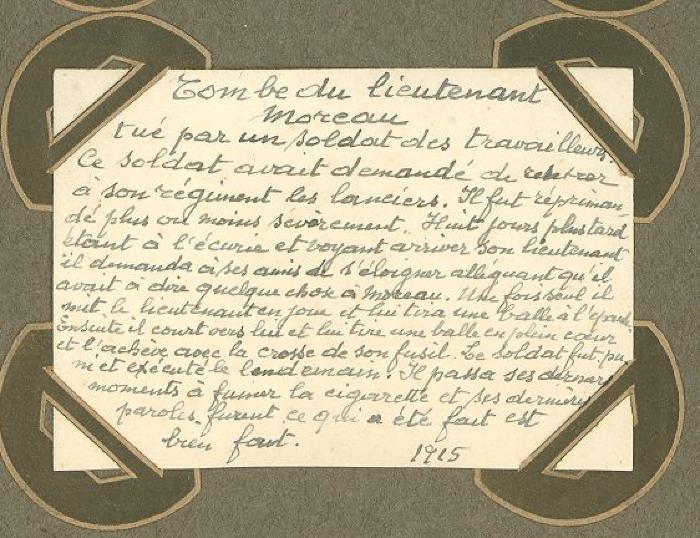 Tombe du lieutenant
Moreau
tué par un soldat des travailleurs.
Ce soldat avait demandé de rentrer
à son régiment les lanciers. Il fut répriman-
dé plus ou moins sévèrement. Huit jours plus tard
étant à l'écurie et voyant arriver son lieutenant
il demanda à ses amis de s'éloigner alléguant qu'il
avait à dire quelque chose à Moreau. Une fois seul il
mit le lieutenant en joue et lui tira une balle à l'épaule
Ensuite il court vers lui et lui tire une balle en plein cœur
et l'achève avec la crosse de son fusil. Le soldat fut pu-
ni et exécuté le lendemain. Il passa ses derniers
moments à fumer la cigarette et ses dernières
paroles furent ce qui a été fait est
bien fait.
1915